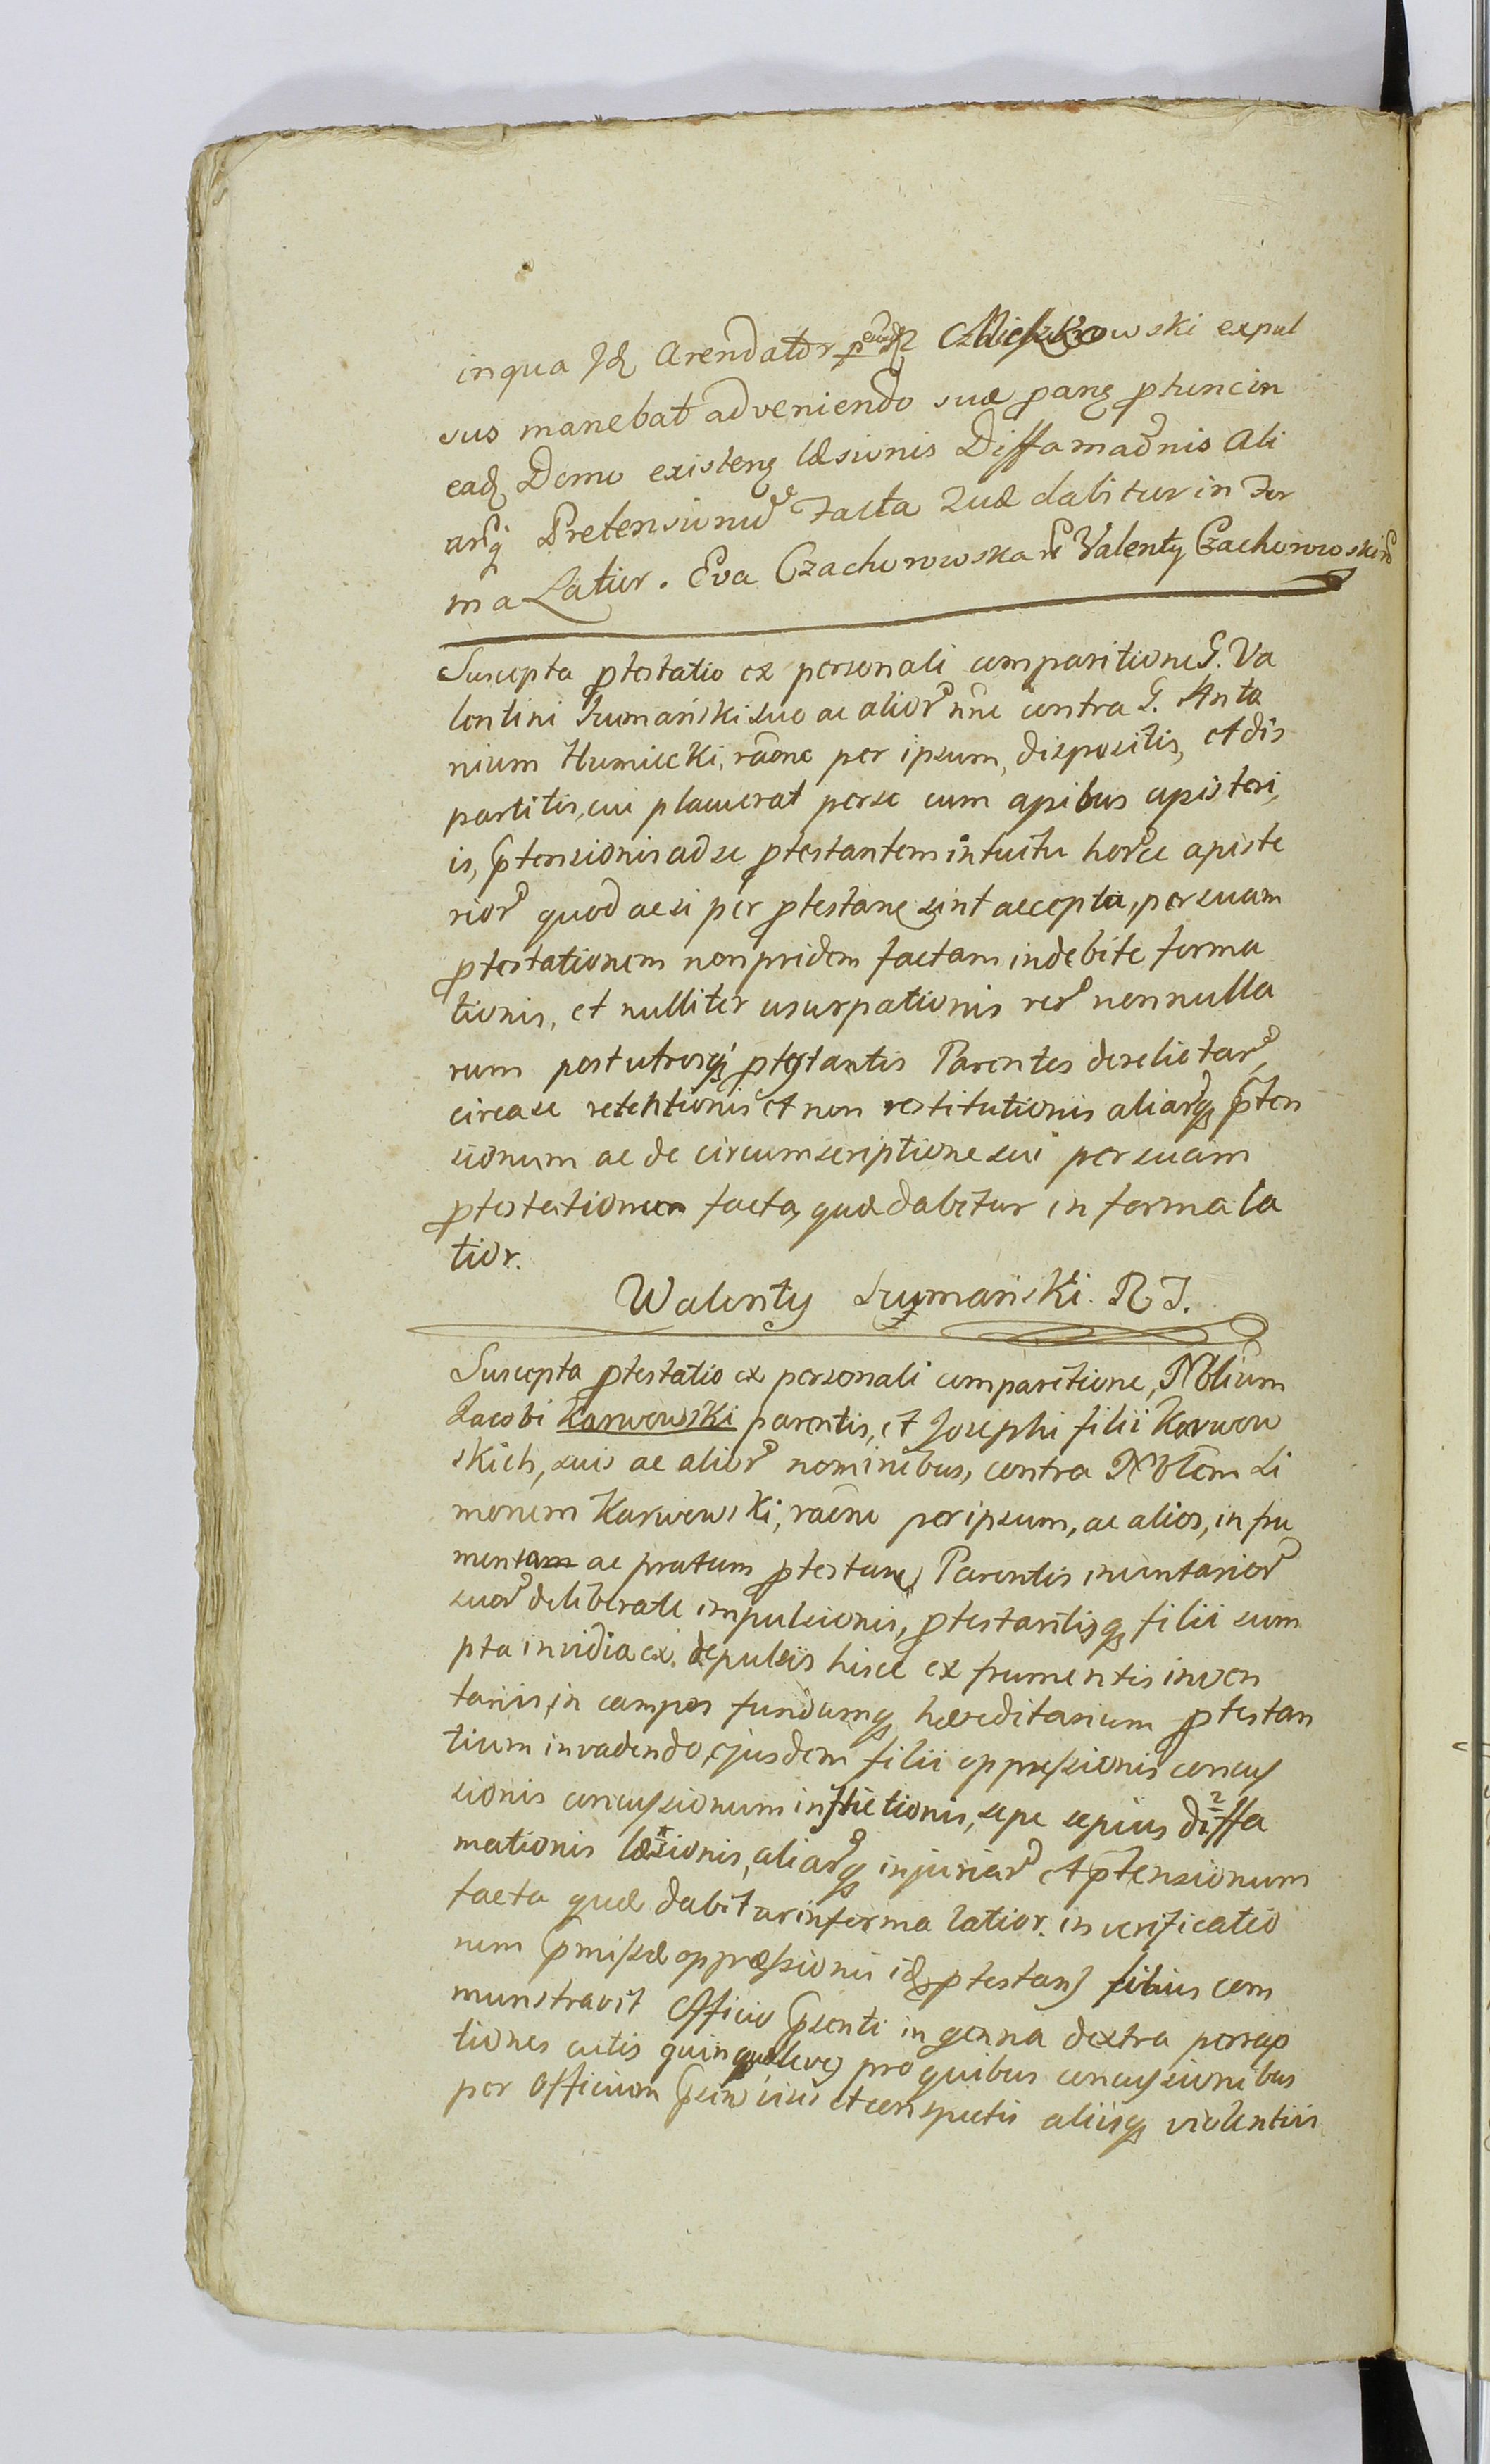 in qua Id Arendator Czdieszkowski expul
sus manebat adveniendo suæ ptang ptunc in
ead Domo existeng læsionis Diffamaonis Ali
arq Pretensionu Facta Quæ dabitur in For
ma Latior. Eva Czachorowska Valenty Czachorowski
Suscepta ptestatio ex personali comparitione G. Va
lentini Szumański suo ac alior nne contra G. Anto
nium Humiecki, raone per ipsum, dispositis, et dis
partitis, cui placuerat per se cum apibus apisteri,
is, ptensionis ad se ptestantem intuitu horce apiste
rior quod ac si per ptestane sint accepta, per suam
ptestationem non pridem factam indebite forma
tionis, et nulliter usurpationis rer nonnulla
rum post utrosq ptestantis Parentes derelictar,
circa se retentionis et non restitutionis aliarq pten
sionum ac de circumscriptione sui per suam
ptestationem facta, quæ dabitur in forma la
tior.
Walenty Szumański
Suscepta ptestatio ex personali comparitione, Nblium
Jacobi Karwowski parentis, et Josephi filii Karwow
skich, suis ac alior nominibus, contra Nblem Si
monem Karwowski, raone per ipsum, ac alios, in fru
menta ac pratum ptestane Parentis inventarior
suor deliberate impulsionis, ptestantisq filii sum
pta invidia ex depulsis hisce ex frumentis inven
tariis, in campos fundumq hæreditarium ptestan
tium invadendo, ejusdem filii oppressionis concus
sionis concussionum inflictionis, sepe sepius diffa
mationis læsionis, aliarq injuriar et ptensionum
facta quæ dabitur in forma latior. in verificatio
nem pmissæ oppræssionis id ptestans filius com
munstravit Officio psenti in genna dextra perrup
tiones cutis quinque leves pro quibus concussionibus
per Officium psens visis et conspectis aliisq violentiis